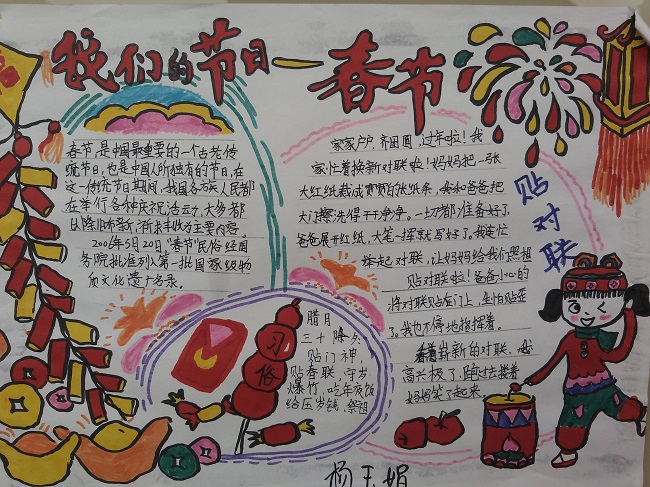 我们的节日—春节
春节,是中国最重要的一个古老传
统节日,也是中国人所独有的节日,在
这一传统节日期间,我国各族人民都
在举行各种庆祝活动,大多都
以除旧布新,
为主要内容。
2006年5月20日,"春节"民俗经国
务院批准列入第一批国家级物
质文化遗产名录。
家家户户,齐团圆,过年啦!我
家忙着换新对联啦!妈妈把一张
大红纸裁成
的张纸条,我和爸爸把
大门擦洗得干干净净。一切都准备好了,
爸爸展开红纸,大笔一挥就写好了。我连忙
举起对联,让妈妈给我们照相
贴对联啦!爸爸小心的
将对联贴在门上,生怕贴歪
了。我也不停地指挥着。
看着崭新的对联,我
高兴极了,跑过去搂着
妈妈笑了起来。
贴对联
习俗
腊月
三十除夕
贴门神,
贴春联,守岁
爆竹,吃年夜饭
给压岁钱,祭祖
杨玉娟